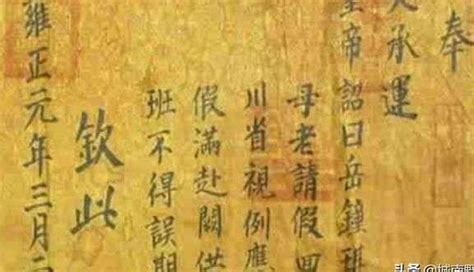 奉
天承運
皇帝詔曰岳鍾琪
母老請假回
川省視例應
假滿赴闕供
班不得誤期
欽此
雍正元年三月二
头条